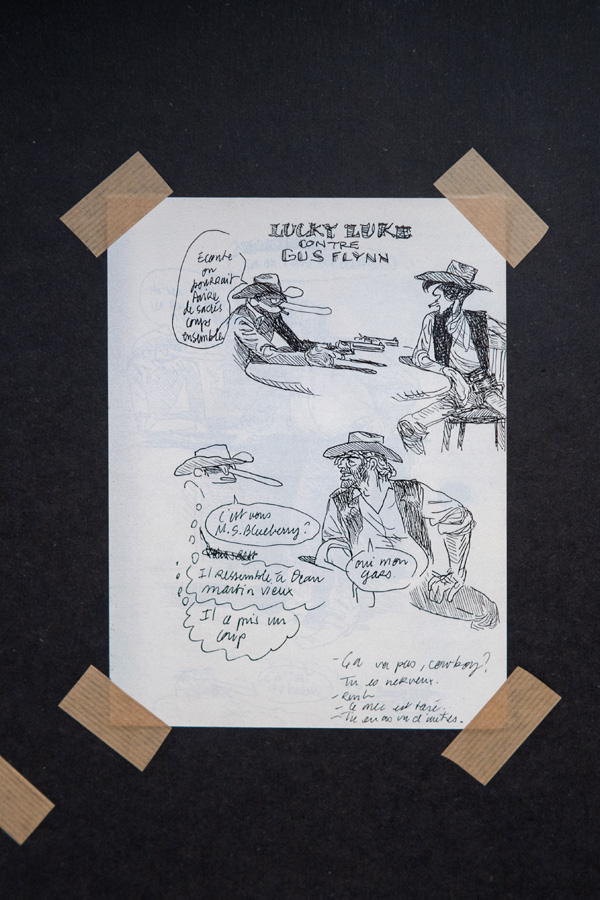 LUCKY LUKE
CONTRE
GUS FLYNN
Écoute
on
pourrait
faire
de sacrés
coups
ensemble
C'est vous
M.S. Blueberry?
oui mon
gars.
Il ressemble à Dean
martin vieux
Il a pris un
coup
- Ça va pas, cowboy?
Tu es nerveux.
- Ce mec est taré.
- Tu en as vu d'autres.